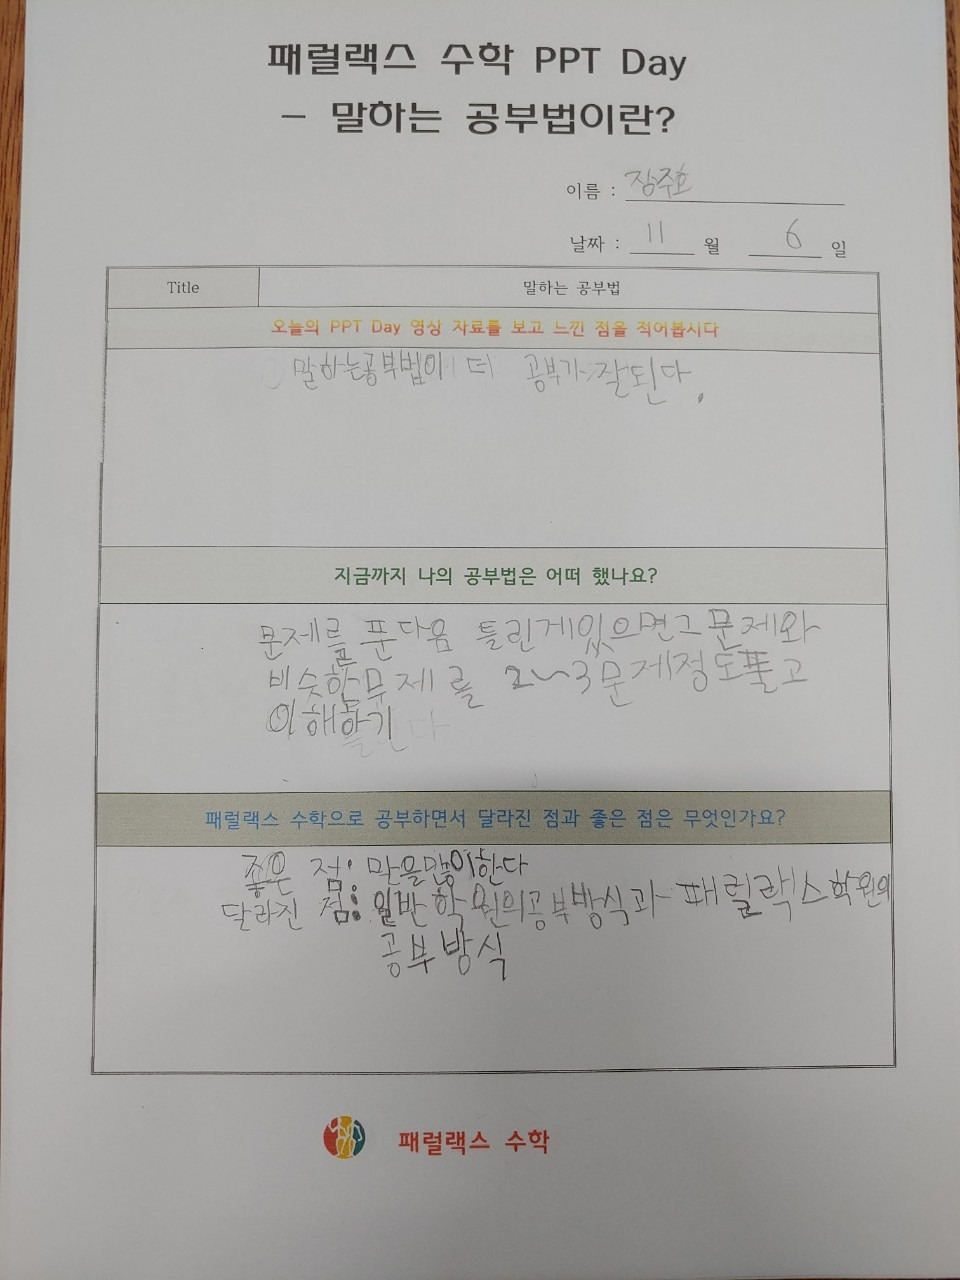 패럴랙스 수학 PPT Day
- 말하는 공부법이란?
이름 : 장주호
날짜 : 11 월 6 일
Title 말하는 공부법
오늘의 PPT Day 영상 자료를 보고 느낀 점을 적어봅시다
말하는공부법이 더 공부가 잘된다.
지금까지 나의 공부법은 어떠 했나요?
문제를 푼다음 틀린게있으면그문제와
비슷한문제를 2~3문제정도풀고
이해하기
패럴랙스 수학으로 공부하면서 달라진 점과 좋은 점은 무엇인가요?
좋은 점: 말을많이한다
달라진 점: 일반학원의공부방식과 패럴락스학원의
공부방식
패럴랙스 수학